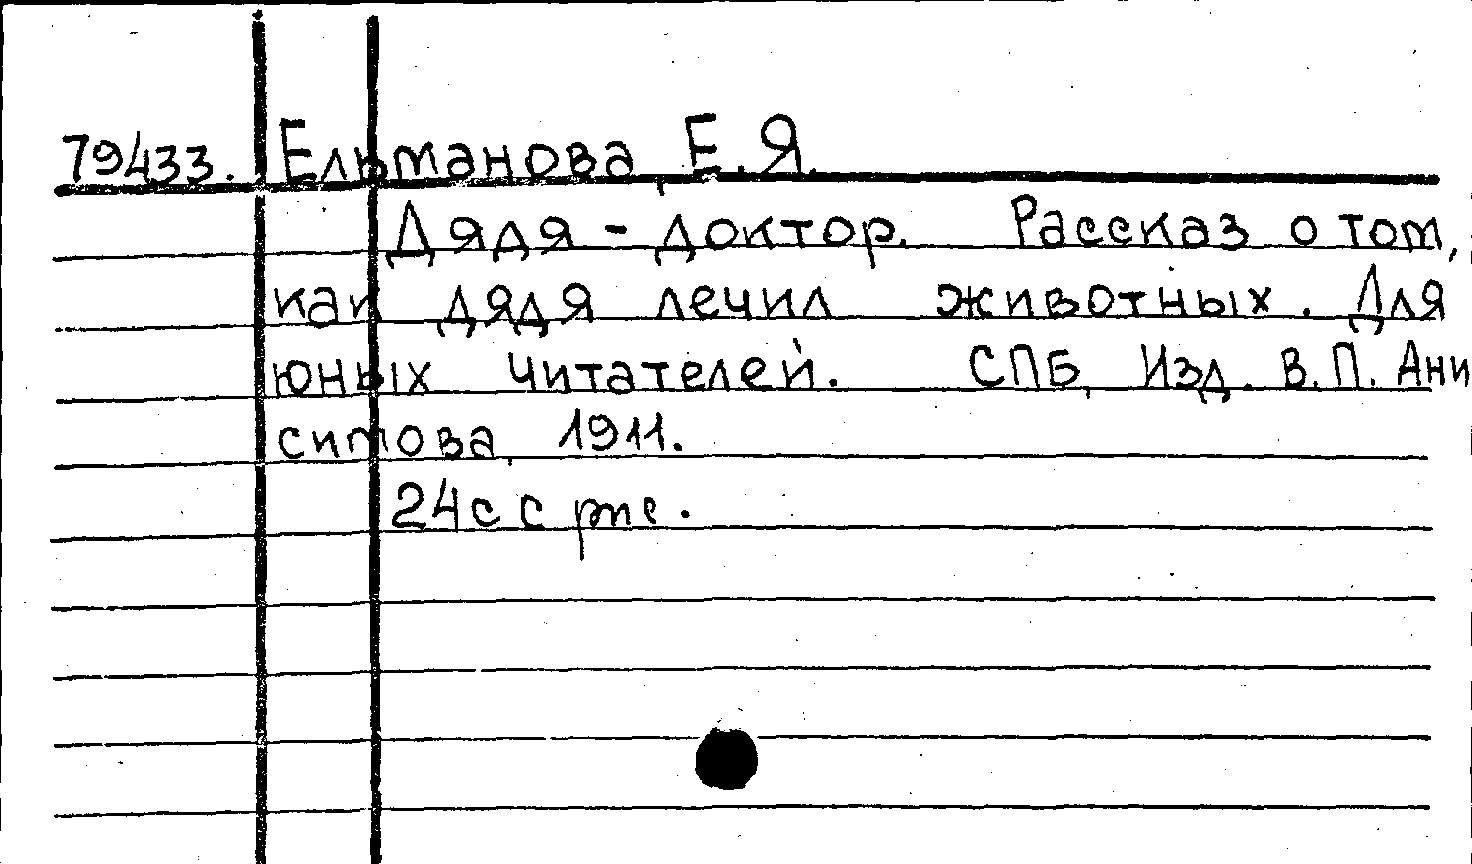 79433. Ельманова, Е.Я.
Дядя - доктор. Рассказ о том,
как дядя лечил животных. Для
юных читателей. СПБ, Изд. В.П. Ани
симова, 1911.
24с с рис.